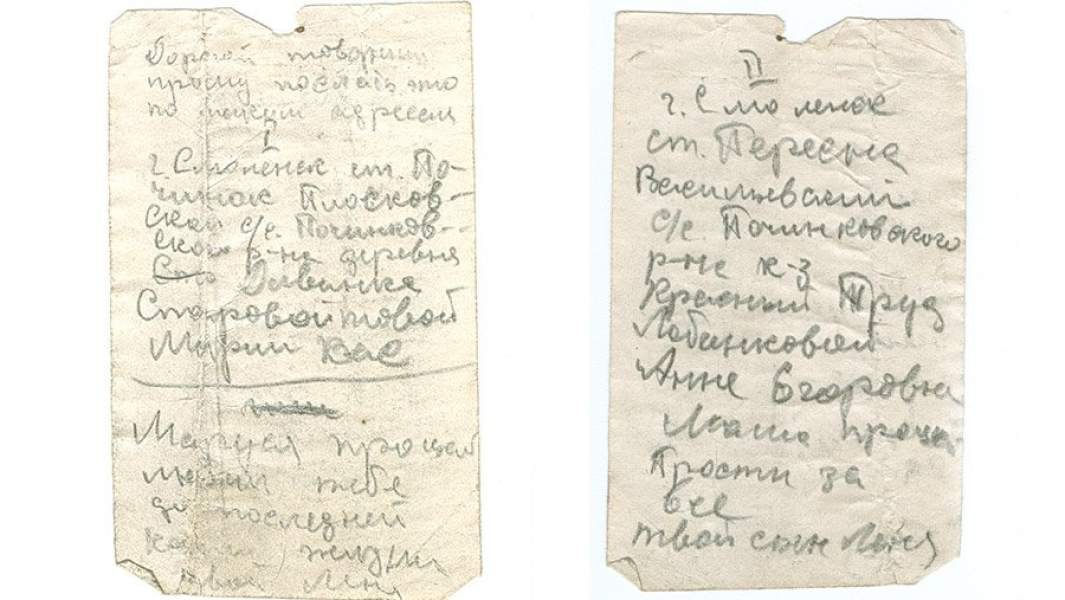 Дорогой товарищ
прошу послать это
по адресам
I
г. Смоленск ст. По-
чинок Плосков-
ской с/с. Починков-
ского р-на деревня
Старовойтовой
Марии Вас
Маруся прощай
тебе
до последней
капли жизни
твой Леня
II
г. Смоленск
ст. Пересна
Васильевский
с/с. Починковского
р-не к-з
Красный Труд
Лабанковой
Анне Егоровне
Мама проща
Прости за
все
твой сын Леня